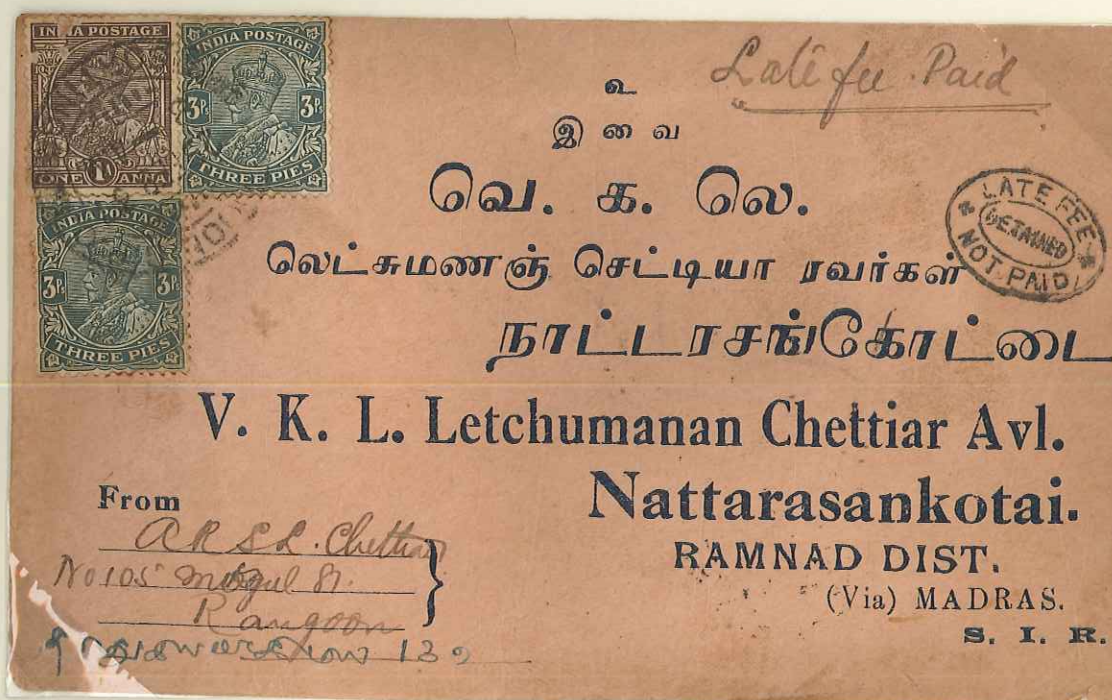 INDIA POSTAGE
ONE 1A ANNA
INDIA POSTAGE
3P. 3P.
THREE PIES
INDIA POSTAGE
3P. 3P.
THREE PIES
Late fee Paid
உ
இவை
வெ. க. லெ.
லெட்சுமணஞ் செட்டியா ரவர்கள்
நாட்டரசங்கோட்டை
LATE FEE
DETAINED
NOT PAID
V. K. L. Letchumanan Chettiar Avl.
Nattarasankotai.
RAMNAD DIST.
(Via) MADRAS.
S. I. R.
From
A R S L. Chettiar
No 105 Mogul St.
Rangoon